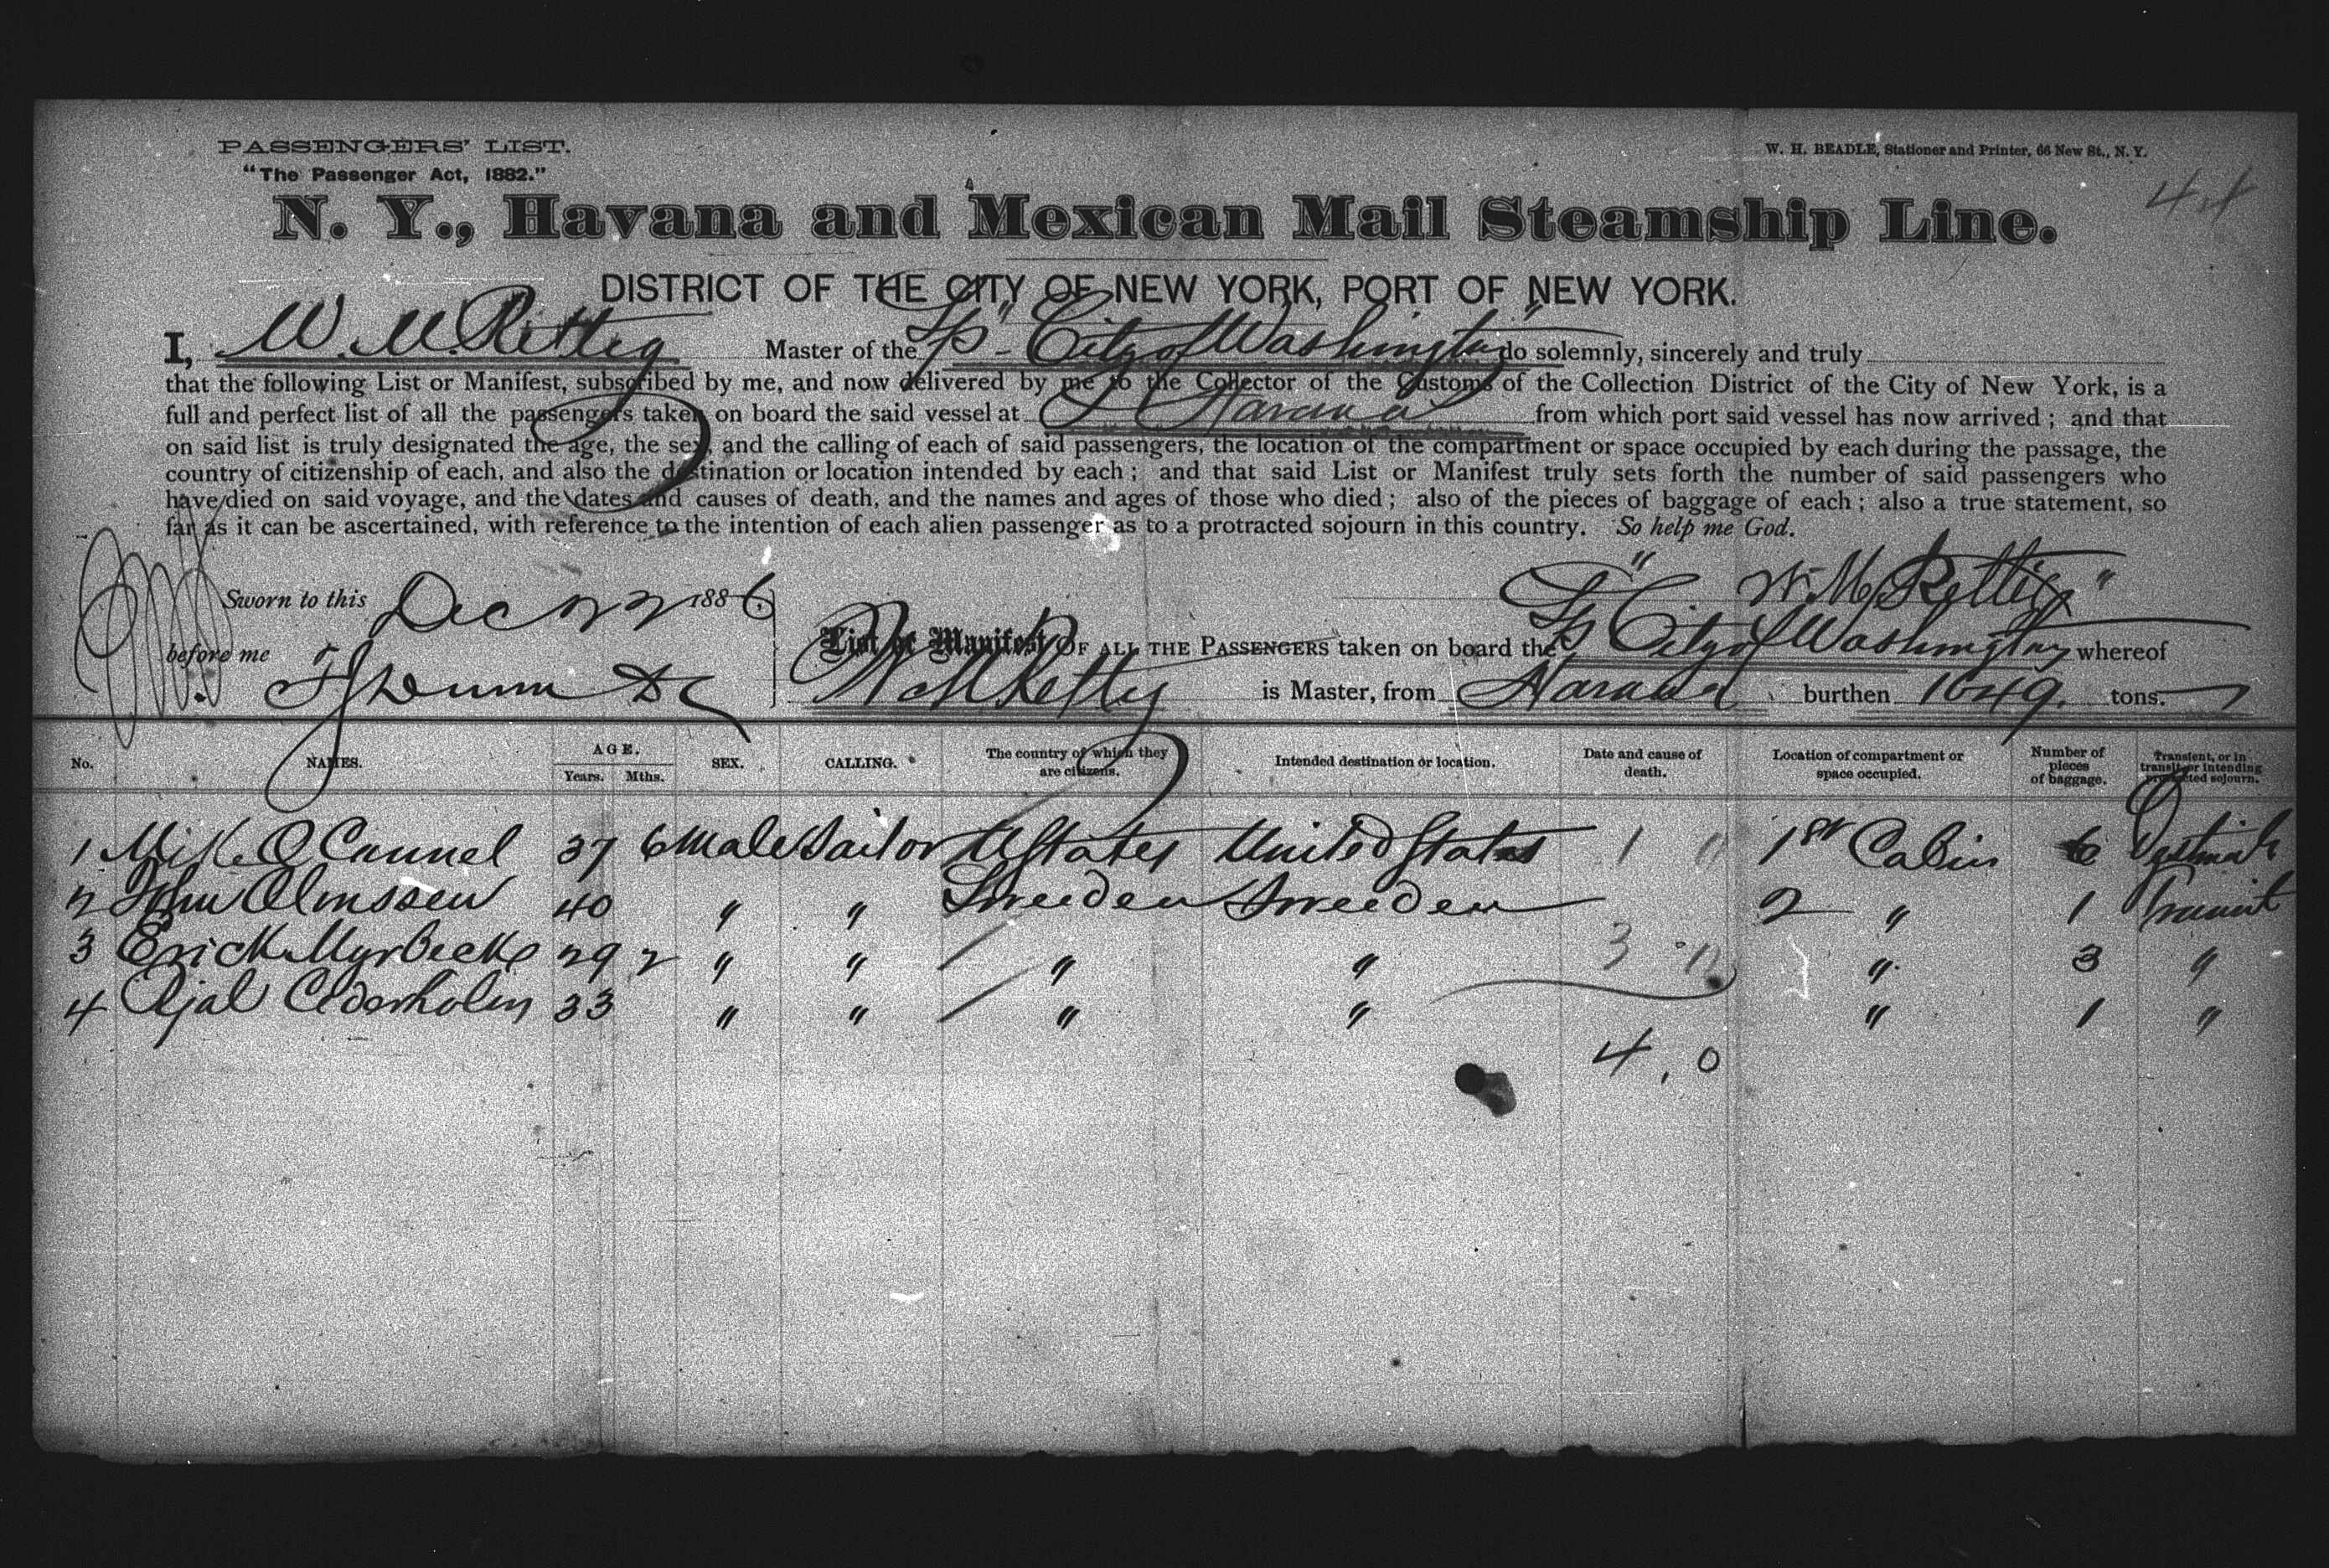 PASSENGERS' LIST.
"The Passenger Act, 1882."
W. H. BEADLE, Stationer and Printer, 66 New St., N. Y.
44
N. Y., Havana and Mexican Mail Steamship Line.
DISTRICT OF THE CITY OF NEW YORK, PORT OF NEW YORK.
I, W. M. Rettig Master of the "City of Washington" do solemnly, sincerely and truly
that the following List or Manifest, subscribed by me, and now delivered by me to the Collector of the Customs of the Collection District of the City of New York, is a
full and perfect list of all the passengers taken on board the said vessel at Havana from which port said vessel has now arrived; and that
on said list is truly designated the age, the sex, and the calling of each of said passengers, the location of the compartment or space occupied by each during the passage, the
country of citizenship of each, and also the destination or location intended by each; and that said List or Manifest truly sets forth the number of said passengers who
have died on said voyage, and the dates and causes of death, and the names and ages of those who died; also of the pieces of baggage of each; also a true statement, so
far as it can be ascertained, with reference to the intention of each alien passenger as to a protracted sojourn in this country. So help me God.
W. M. Rettig
Sworn to this Dec 22 1886.
before me
List or Manifest OF ALL THE PASSENGERS taken on board the "City of Washington" whereof
W M Rettig is Master, from Havana burthen 1649. tons.
No. NAMES. AGE. Years. Mths. SEX. CALLING. The country of which they are citizens. Intended destination or location. Date and cause of death. Location of compartment or space occupied. Number of pieces of baggage. Transient, or in transit, or intending protracted sojourn.
1 Mike O Connel 37 6 Male Sailor UStates United States 1 1st Cabin 6
2 John Olmssen 40 " " Sweeden Sweeden 2 " 1 Transit
3 Erick Myrbecke 29 2 " " " " 3 " 3 "
4 Ajal Cederholm 33 " " " " " 1 "
4, 0